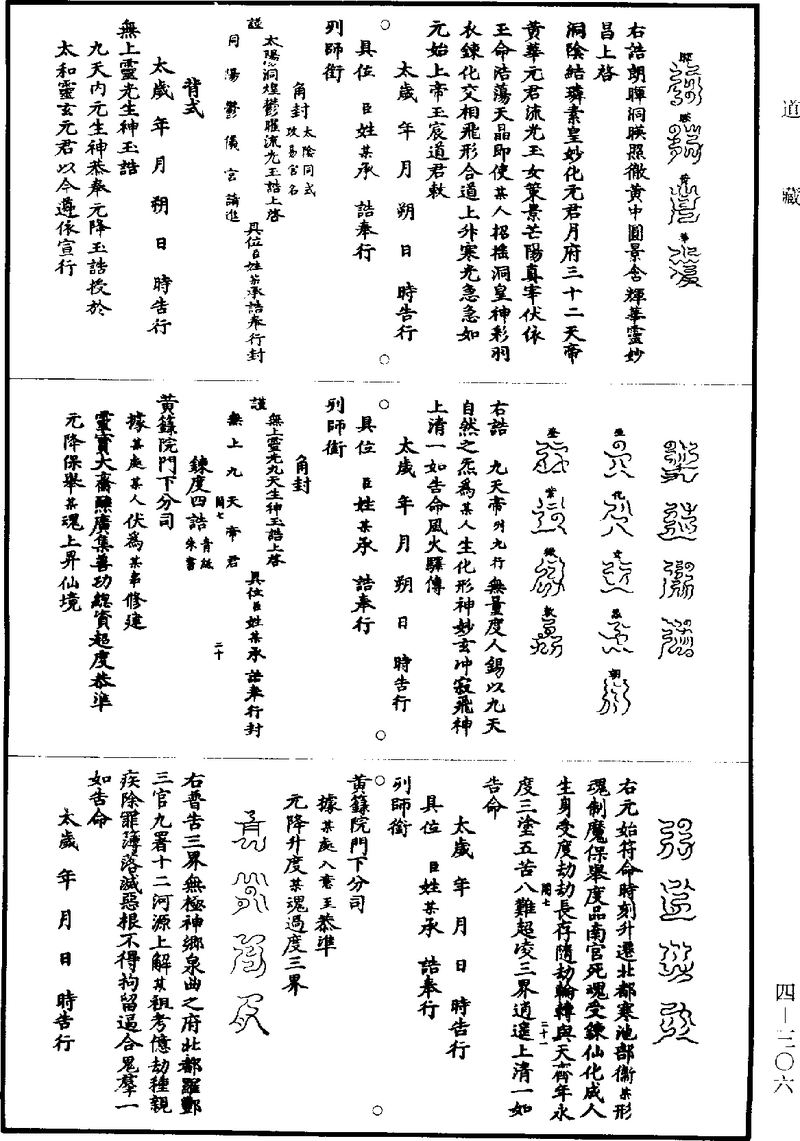 道藏
右誥朗暉洞暎照徹黃中圓景含輝華靈妙
昌上啓
洞陰結璘素皇妙化元君月府三十二天帝
黃華元君流光玉女策景芒陽真宰伏依
玉命浩蕩天晶即使某人招搖洞皇神彩羽
衣鍊化交相飛形合道上升寒光急急如
元始上帝玉宸道君敕
太歲 年 月 朔 日 時告行
具位 臣姓某承 誥奉行
列師銜
角封 太陰同式 改易宮名
太陽洞煌鬱曜流光玉誥上啓 具位臣姓某承誥奉行封
謹 同陽鬱儀宮 進
背式
太歲 年 月 朔 日 時告行
無上靈光生神玉誥
九天內元生神恭奉 元降玉誥授於
太和靈玄元君以今遵依宣行
右誥 九天帝 列九行 無量度人錫以九天
自然之炁為某人生化形神妙玄冲寂飛神
上清一如告命風火驛傳
太歲 年 月 朔 日 時告行
具位 臣姓某承 誥奉行
列師銜
角封
無上靈光九天生神玉誥上啓 具位臣姓某承誥奉行封
謹 無上九天帝君
鍊度四誥 青紙朱書
黃籙院門下分司
據某處某人 伏為某事修建
靈寶大齋醮廣集善功總資超度恭準
元降保舉某魂上昇仙境
二十
右元始符命時刻升遷北都寒池部衛某形
魂制魔保舉度品南宮死魂受鍊仙化成人
生身受度劫劫長存隨劫輪轉與天齊年永
度三塗五苦八難超凌三界逍遙上清一如
告命
太歲 年 月 日 時告行
具位 臣姓某承 誥奉行
列師銜
二十一
黃籙院門下分司
據某處入意至恭準
元降升度某魂過度三界
右普告三界無極神鄉泉曲之府北都羅酆
三官九署十二河源上解某祖考億劫種親
疾除罪簿落滅惡根不得拘留逼合鬼羣一
如告命
太歲 年 月 日 時告行
四—三〇六